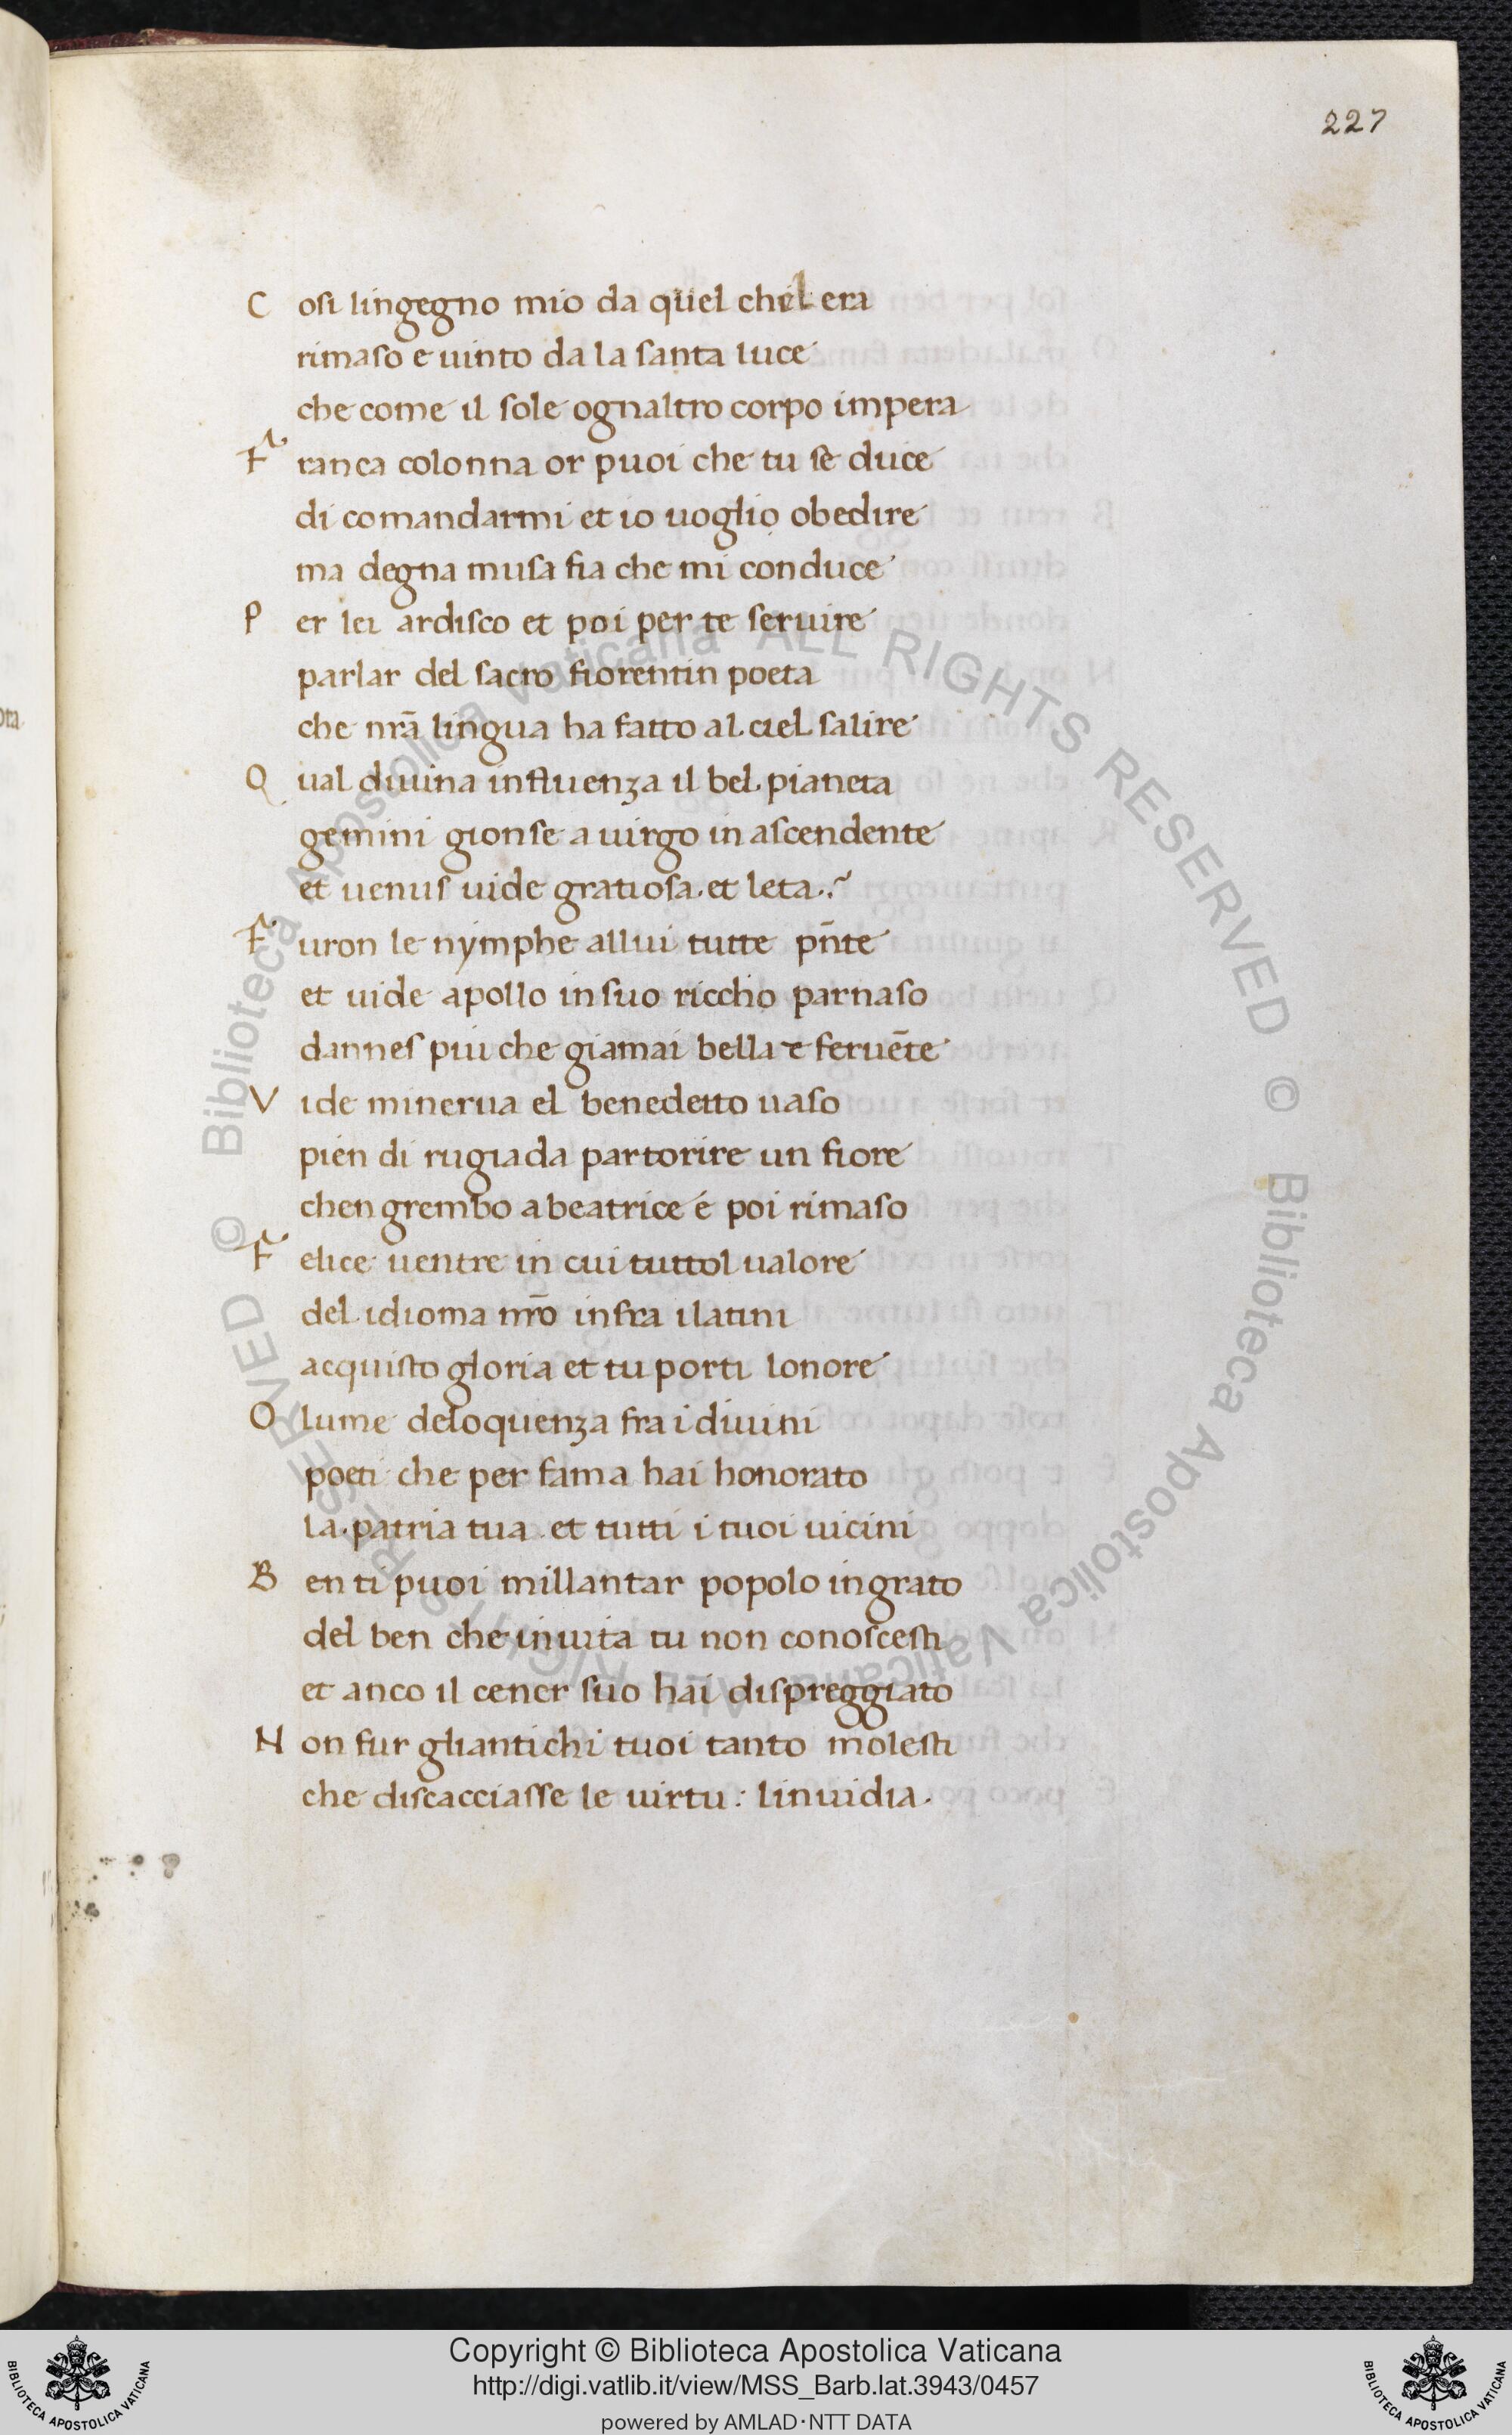 227
C osi lingegno mio da quel chel era
rimaso e uinto da la santa luce
che come il sole ognaltro corpo impera
F ranca colonna or puoi che tu se duce
di comandarmi et io uoglio obedire
ma degna musa fia che mi conduce
P er lei ardisco et poi per te seruire
parlar del sacro fiorentin poeta
che nr̄a lingua ha fatto al ciel salire
Q ual diuina influenza il bel pianeta
gemini gionse a uirgo in ascendente
et uenus uide gratiosa. et leta.
F uron le nymphe allui tutte pn̄te
et uide apollo in suo riccho parnaso
dannes piu che giamai bella e feruēte
V ide minerua el benedetto uaso
pien di rugiada partorire un fiore
chen grembo a beatrice é poi rimaso
F elice uentre in cui tuttol ualore
del idioma nr̄o infra i latini
acquisto gloria et tu porti lonore
O lume deloquenza fra i diuini
poeti che per fama hai honorato
la patria tua. et tutti i tuoi uicini
B en ti puoi millantar popolo ingrato
del ben che inuita tu non conoscesti
et anco il cener suo hai dispreggiato
N on fur gliantichi tuoi tanto molesti
che discacciasse le uirtu: linuidia.
© Biblioteca Apostolica Vaticana ALL RIGHTS RESERVED © Biblioteca Apostolica Vaticana ALL RIGHTS RESERVED
Copyright © Biblioteca Apostolica Vaticana
http://digi.vatlib.it/view/MSS_Barb.lat.3943/0457
powered by AMLAD・NTT DATA
BIBLIOTECA APOSTOLICA VATICANA
BIBLIOTECA APOSTOLICA VATICANA